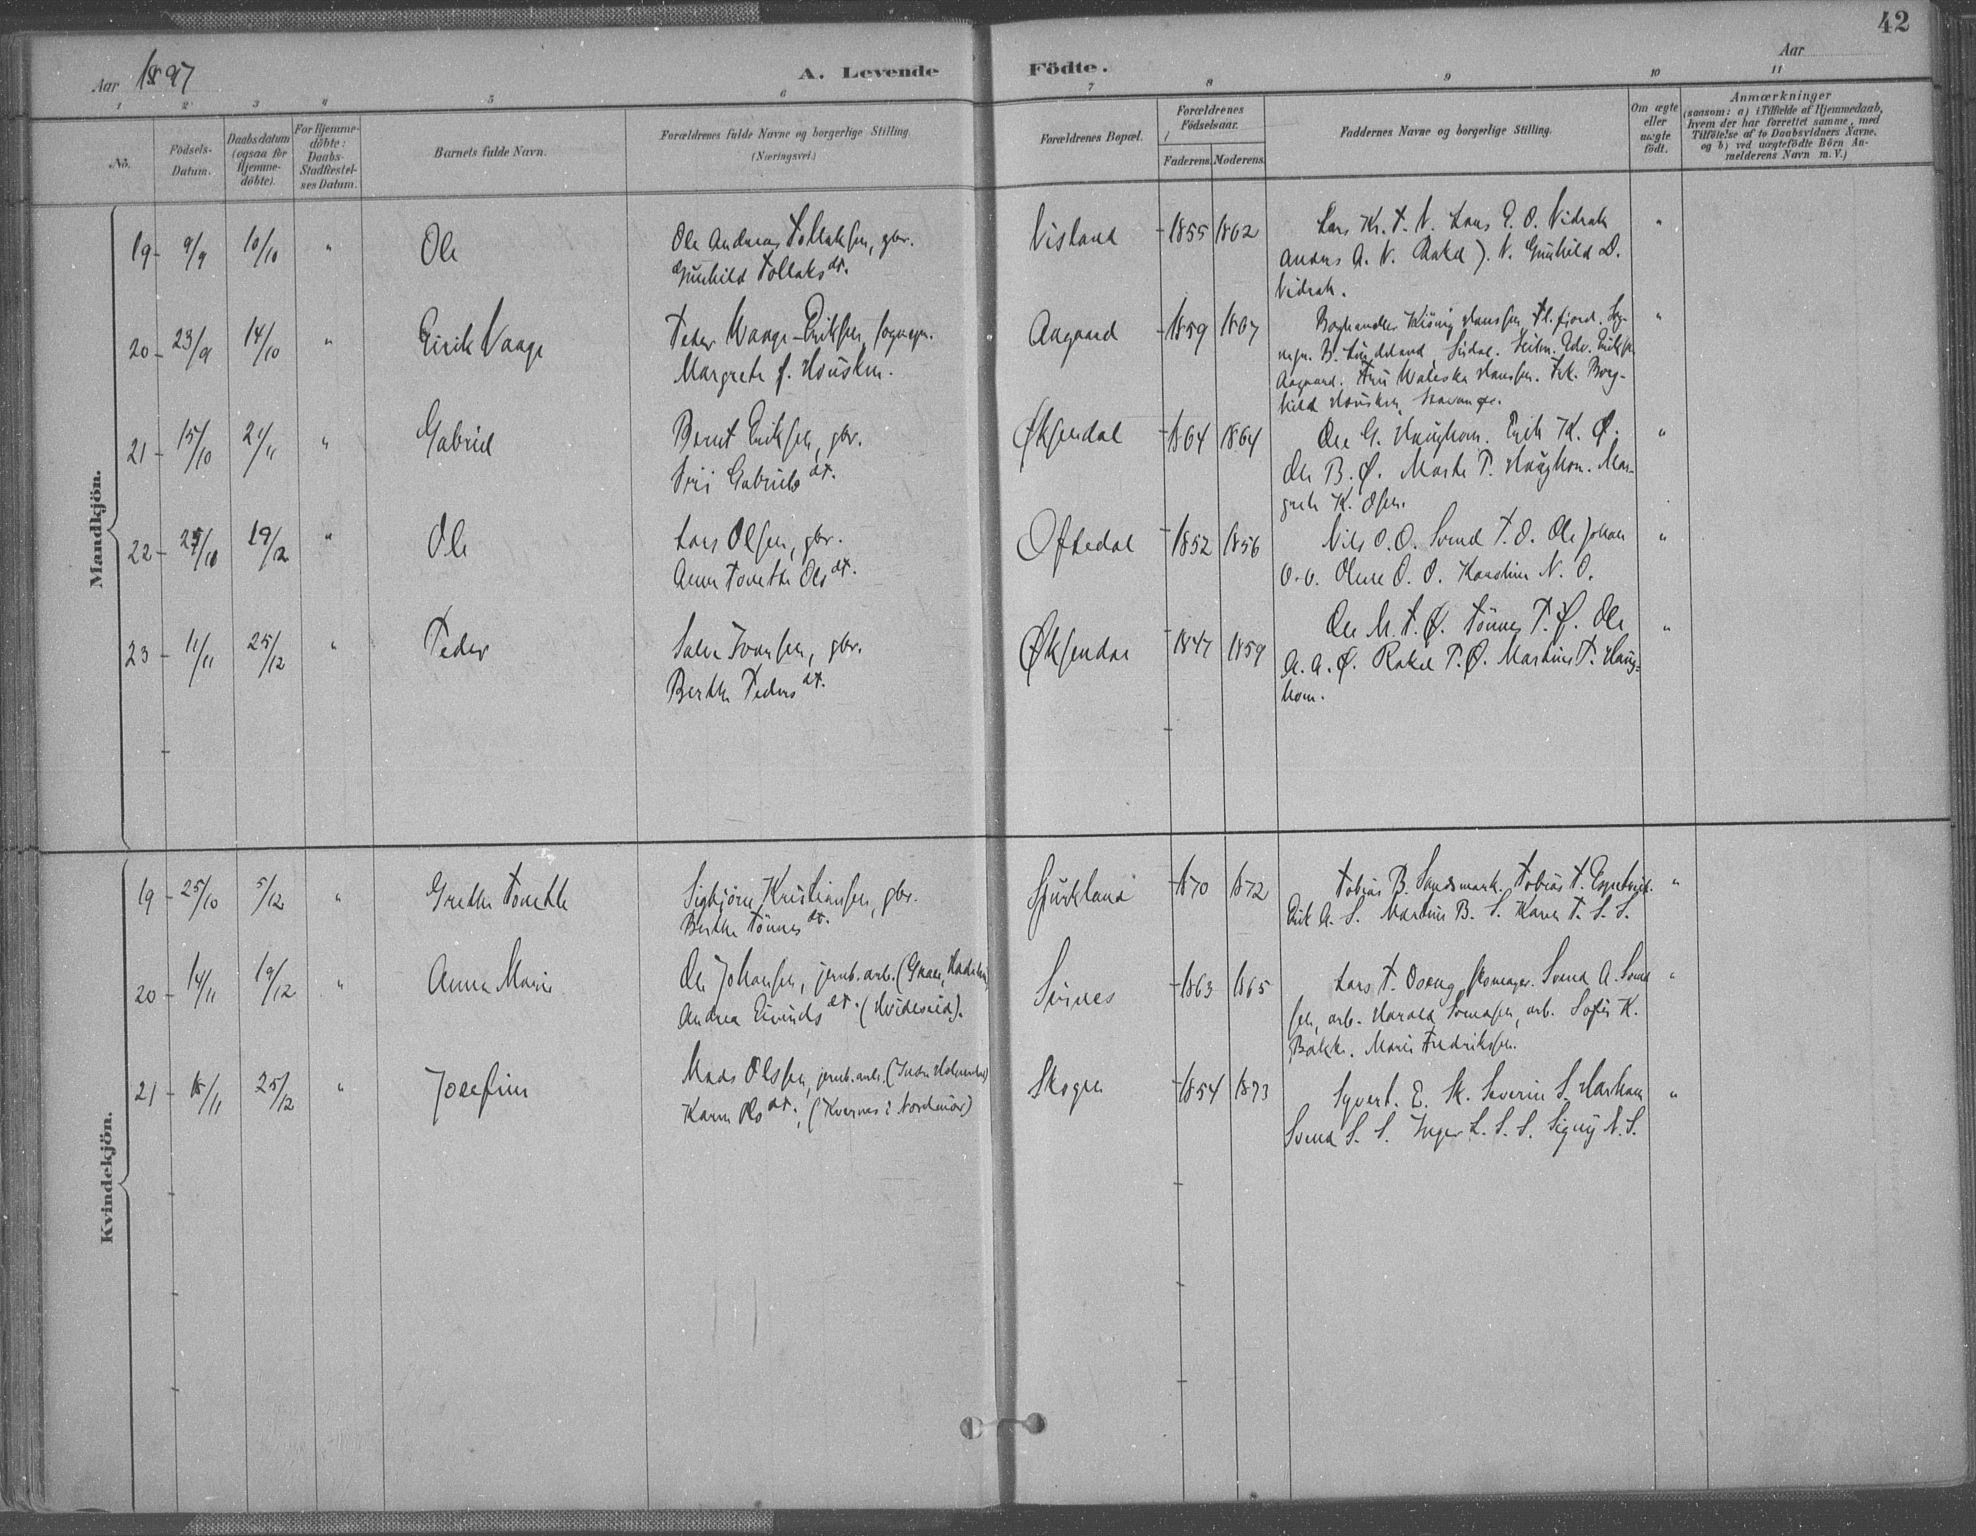 42
Aar 1897
A. Levende Födte.
Aar
1 2 3 4 5 6 7 8 9 10 11
No.
Födsels-Datum.
Daabsdatum (ogsaa för Hjemme-döbte).
For Hjemme-döbte: Daabs-Stadfæstel-ses Datum.
Barnets fulde Navn.
Forældrenes fulde Navne og borgerlige Stilling. (Næringsvei.)
Forældrenes Bopæl.
Forældrenes Födselsaar.
Faderens. Moderens.
Faddernes Navne og borgerlige Stilling.
Om ægte eller uægte födt.
Anmærkninger
(saasom: a) i Tilfælde af Hjemmedaab,
hvem der har forrettet samme, med
Tilföielse af to Daabsvidners Navne,
og b) ved uægtefödte Börn An-
melderens Navn m. V.)
Mandkjön.
19 9/9 10/10 " Ole
Ole Andreas Tollaksen, gbr.
Gunhild Tollaksdt.
Visland 1855 1862
Lars Kr. T. V. Lars E. O. Vidrak
Anders A. V. Rakel J. V. Gunhild D.
Vidrak. "
20 23/9 14/10 " Eirik Vaage
Peder Waage-Eriksen, sognepr.
Margrete f. Housken.
Aagaard 1859 1867
Boghandler Hansen, Fl.fjord. Sog-
nepr. B. Lindeland, Sirdal. Edv. Eriksen
Aagaard. Fru Waleska Hansen. Frk. Borg-
hild Housken, Stavanger. "
21 15/10 21/11 " Gabriel
Bernt Eriksen, gbr.
Siri Gabrielsdt.
Øksendal 1864 1864
Ole G. Haughom. Erik K. Ø.
Ole B. Ø. Marte T. Haughom. Mar-
grete K. Osen. "
22 /10 19/12 " Ole
Lars Olsen, gbr.
Anne Tonette Olsdt.
Oftedal 1852 1856
Nils O. O. Svend T. O. Ole Johan
O. O. Olene O. O. Karstine N. O. "
23 11/11 25/12 " Peder
Salve Ivarsen, gbr.
Berthe Pedersdt.
Øksendal 1847 1859
Ole M. T. Ø. Tönnes T. Ø. Ole
A. A. Ø. Rakel P. Ø. Martine T. Haug-
hom. "
Kvindekjön.
19 25/10 5/12 " Grethe Tonette
Sigbjörn Kristiansen, gbr.
Berthe Tönnesdt.
Spirkland 1870 1872
Tobias B. Sandsmark. Tobias T.
Eirik A. S. Martine B. S. Karen T. S. S. "
20 14/11 19/12 " Anne Marie
Ole Johansen, jernb.arb.
Andrea Eivindsdt. (Hvideseid).
Sirnes 1863 1865
Lars T. Oseng, skomager. Svend A. Svend-
sen, arb. Harald Svendsen, arb. Sofie K.
Bakke. Marie Fredriksen. "
21 /11 25/12 " Josefine
Mads Olsen, jernb.arb.
Karen Olsdt. (Kvernes i Nordmör)
Skogen 1854 1873
Syvert. E. Sk. Severin S. Harham
Svend S. S. Inger L. S. S. Signy N. S. "